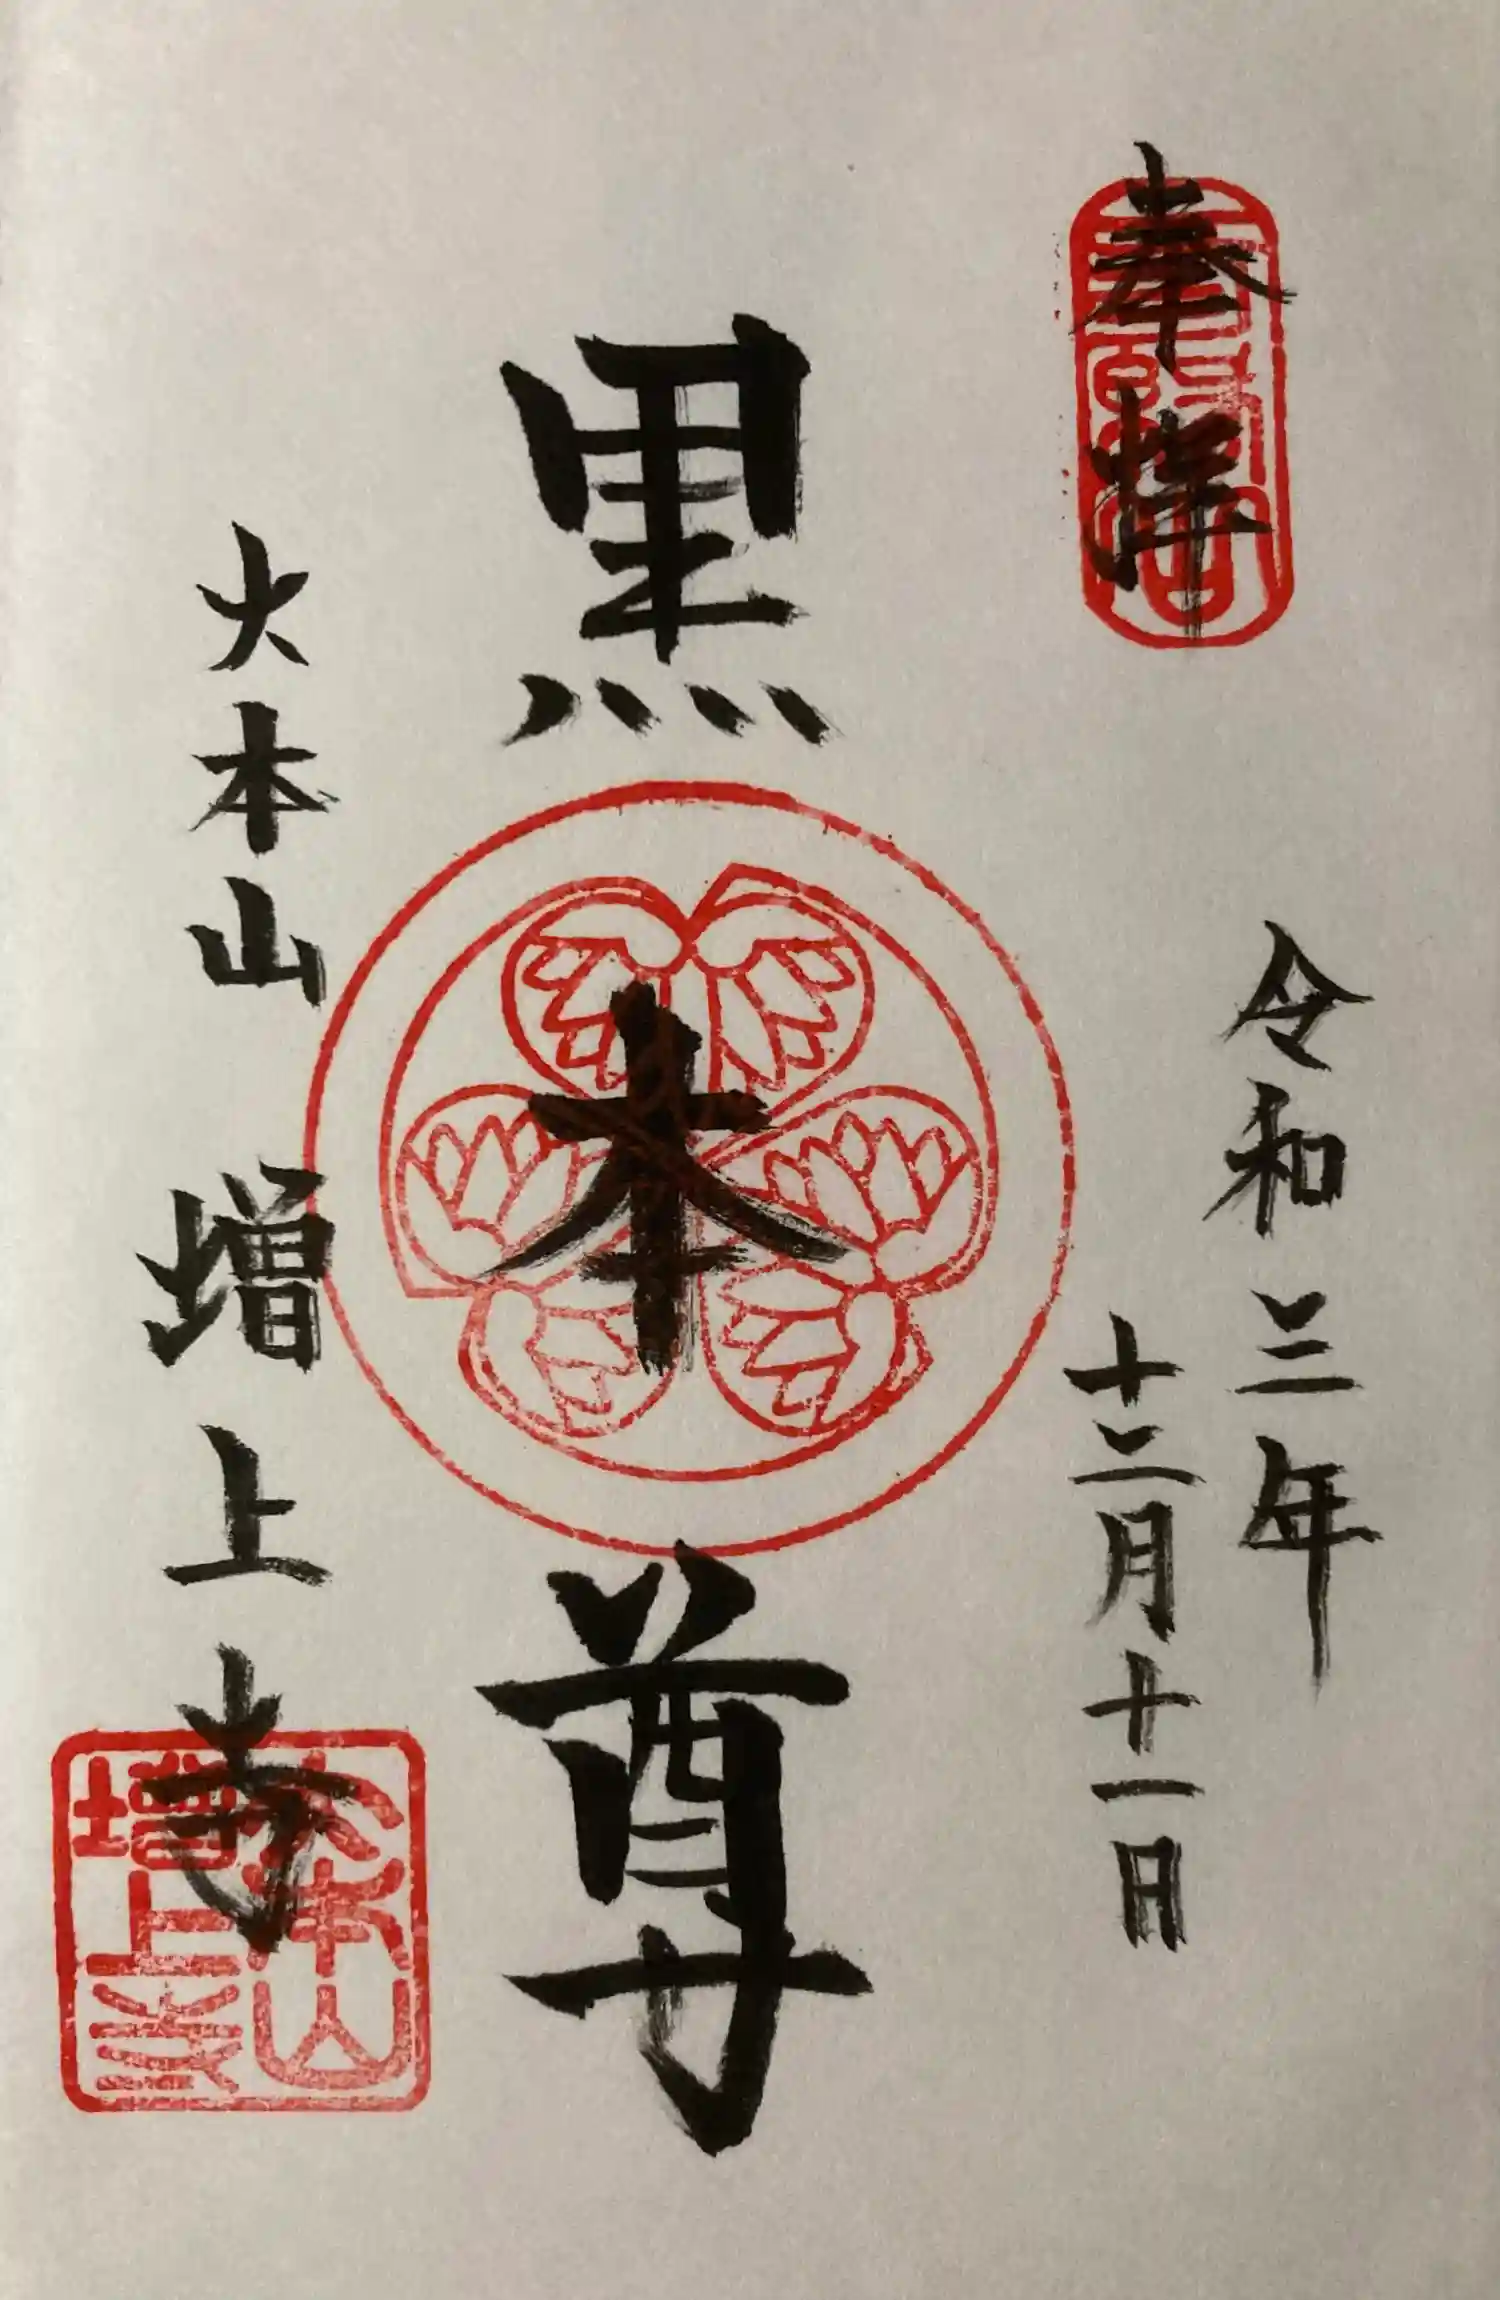 奉拝
令和三年
十二月十一日
黒本尊
大本山 増上寺
大本山
増上寺